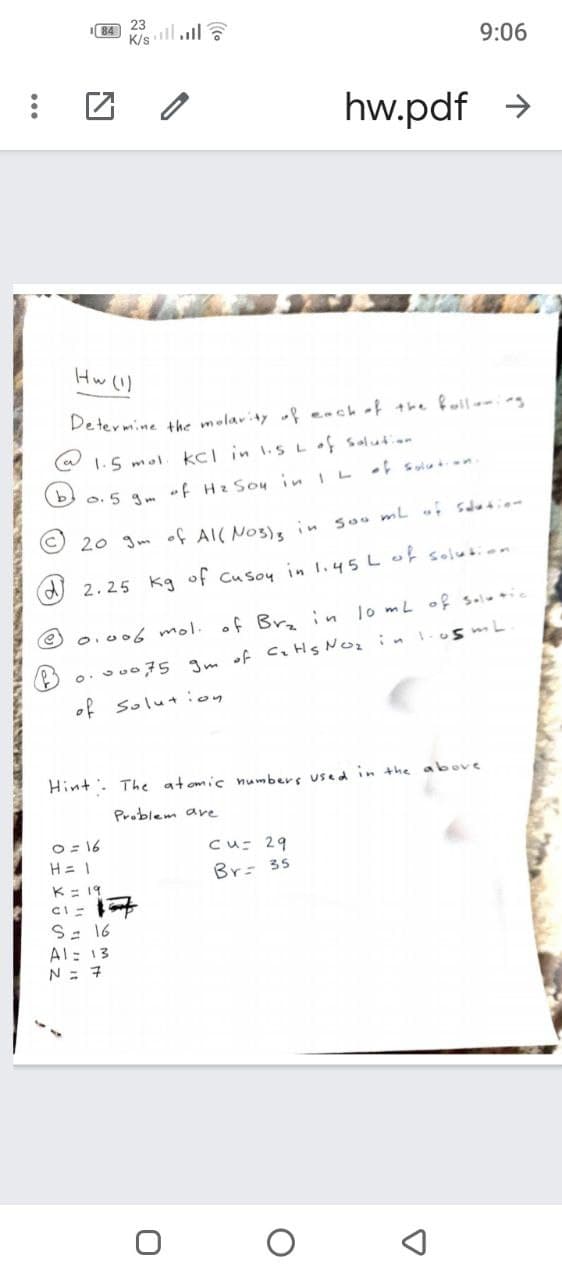 84 23 K/s 9:06
hw.pdf
Hw (1)
Determine the molarity of each of the following
(a) 1.5 mol. KCl in 1.5 L of solution
(b) 0.5 gm of H2SO4 in 1 L of solution.
(c) 20 gm of Al(NO3)3 in 500 mL of solution
(d) 2.25 kg of CuSO4 in 1.45 L of solution
(e) 0.006 mol. of Br2 in 10 mL of solutio
(f) 0.00075 gm of C2H5NO2 in 1.05 mL.
of solution
Hint:. The atomic numbers used in the above
Problem are
O = 16 Cu = 29
H = 1 Br = 35
K = 19
Cl = 17
S = 16
Al = 13
N = 7